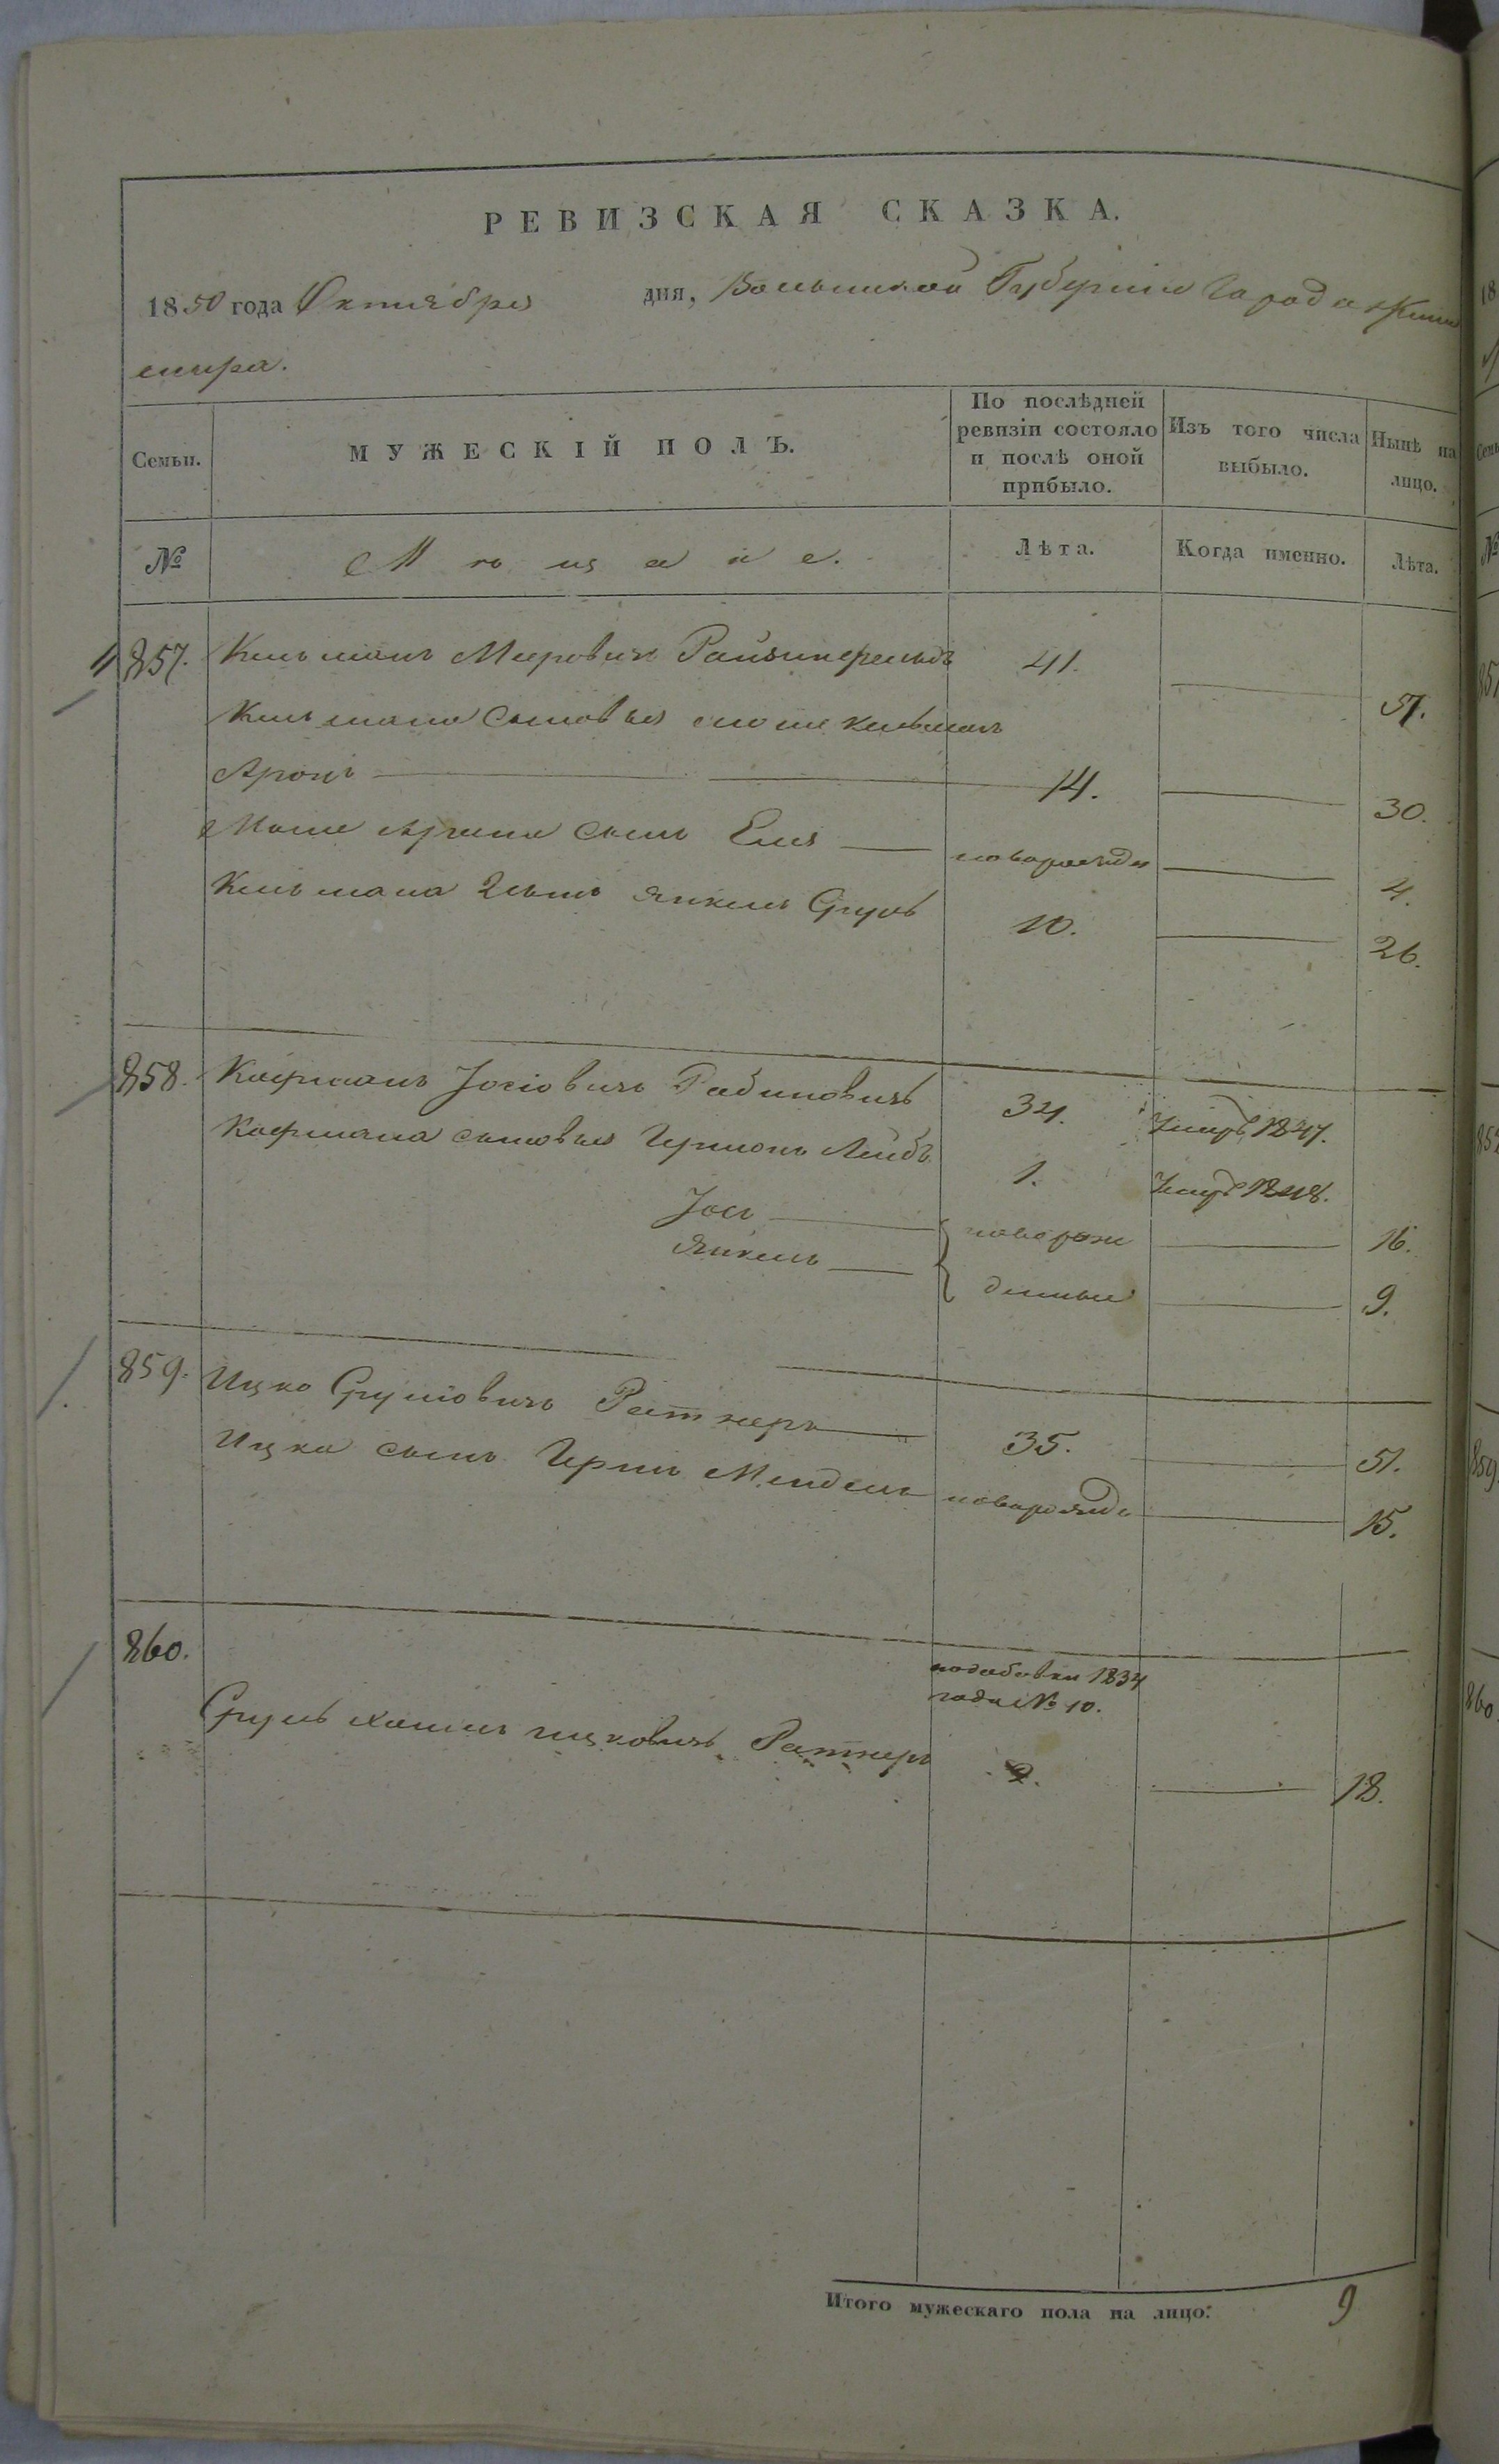 РЕВИЗСКАЯ СКАЗКА.
1850 года Октября дня, Волынской Губернiи Города Жито
мира.
Семьи. МУЖЕСКІЙ ПОЛЪ. По послѣдней ревизіи состояло и послѣ оной прибыло. Изъ того числа выбыло. Нынѣ на лицо.
№ Мѣщане. Лѣта. Когда именно. Лѣта.
857. Кельманъ Мееровичъ 41. 57.
Кельмана сыновья
Аронъ 14. 30.
сынъ новорожден 4.
Кельмана 2 сынъ Янкель Сруль 10. 26.
858. Кофманъ Іосіовичъ Рабиновичъ 34. Умеръ 1847.
Кофмана сыновья Гершонъ Лейбъ 1. Умеръ 1848.
Іось новорож 16.
Янкель денные 9.
859. Ицко Срулiовичъ Ратнеръ 35. 51.
Ицка сынъ Герш Мендель новорожде 15.
860. подобовки 1834
года № 10.
Сруль Хаимъ Ицковичъ Ратнеръ 2. 18.
Итого мужескаго пола на лицо: 9